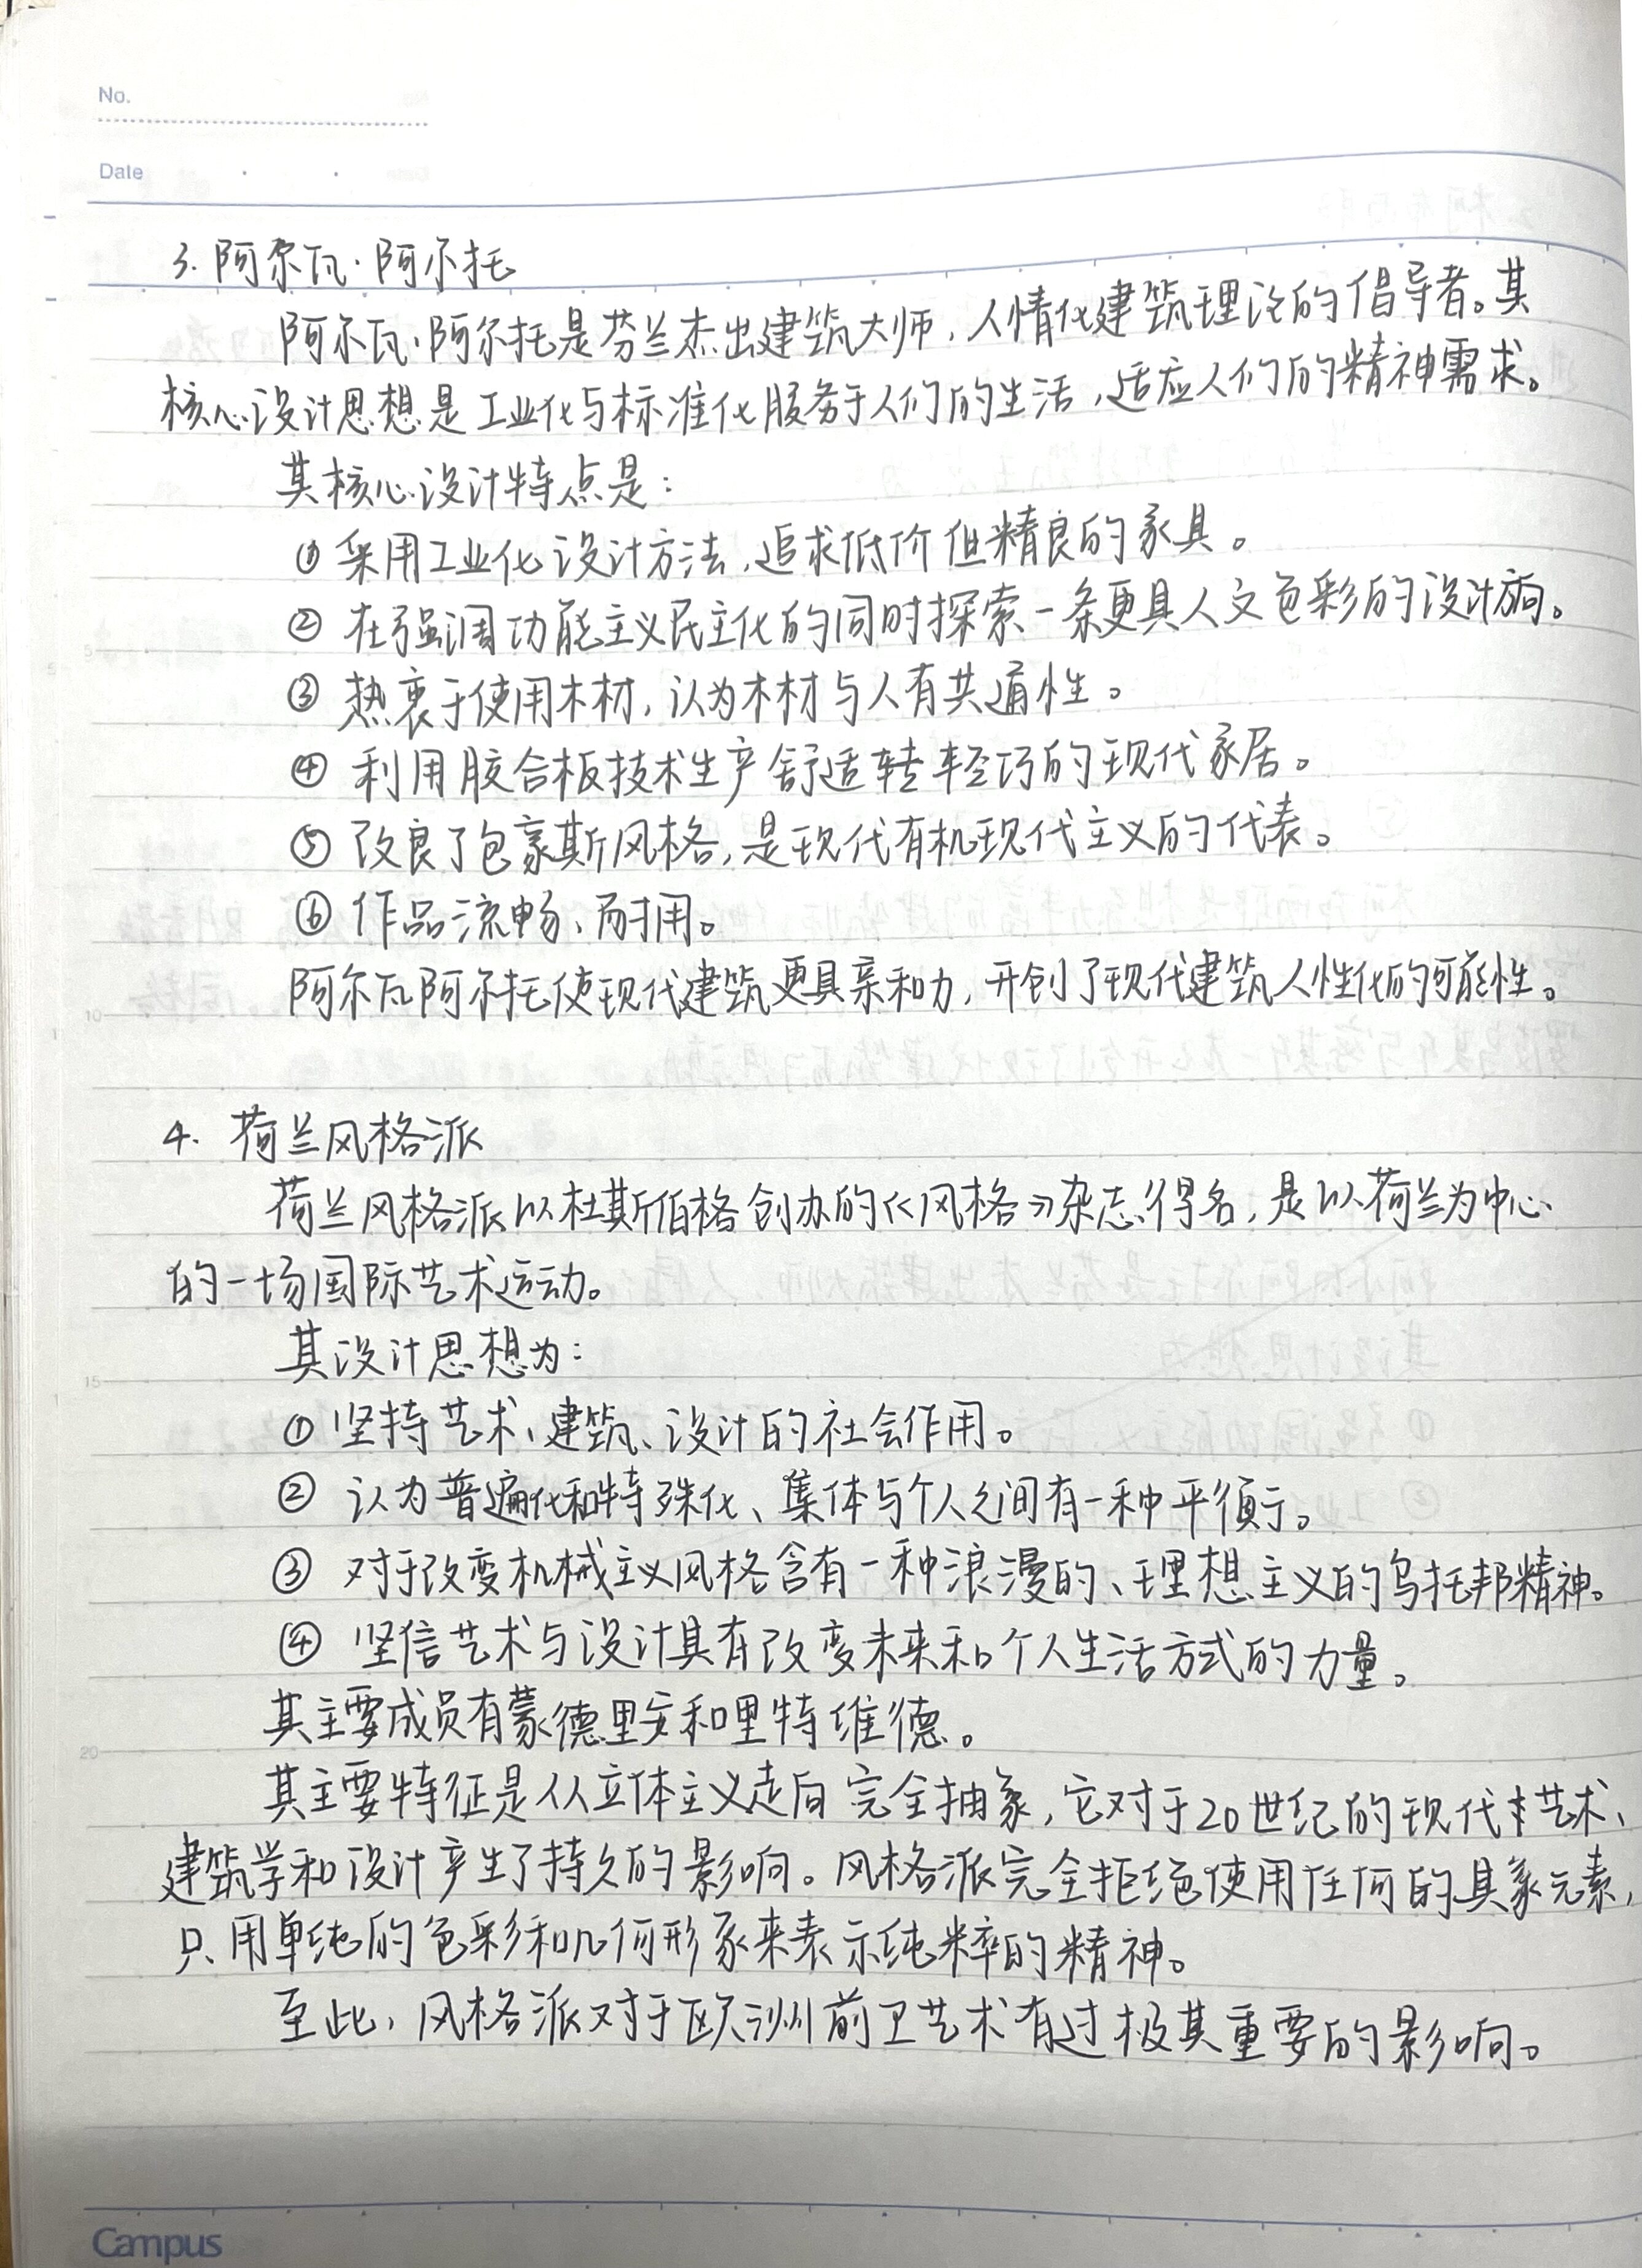 No.
Date
3. 阿尔瓦·阿尔托
阿尔瓦·阿尔托是芬兰杰出建筑大师，人情化建筑理论的倡导者。其
核心设计思想是工业化与标准化服务于人们的生活，适应人们的精神需求。
其核心设计特点是：
① 采用工业化设计方法，追求低价但精良的家具。
② 在强调功能主义民主化的同时探索一条更具人文色彩的设计方向。
5
③ 热衷于使用木材，认为木材与人有共通性。
④ 利用胶合板技术生产舒适轻巧的现代家居。
⑤ 改良了包豪斯风格，是现代有机现代主义的代表。
⑥ 作品流畅、耐用。
阿尔瓦阿尔托使现代建筑更具亲和力，开创了现代建筑人性化的可能性。
10
4. 荷兰风格派
荷兰风格派以杜斯伯格创办的《风格》杂志得名，是以荷兰为中心
的一场国际艺术运动。
其设计思想为：
15
① 坚持艺术、建筑、设计的社会作用。
② 认为普遍化和特殊化、集体与个人之间有一种平衡。
③ 对于改变机械主义风格含有一种浪漫的、理想主义的乌托邦精神。
④ 坚信艺术与设计具有改变未来和个人生活方式的力量。
其主要成员有蒙德里安和里特维德。
20
其主要特征是从立体主义走向完全抽象，它对于20世纪的现代艺术、
建筑学和设计产生了持久的影响。风格派完全拒绝使用任何的具象元素，
只用单纯的色彩和几何形象来表示纯粹的精神。
至此，风格派对于欧洲前卫艺术有过极其重要的影响。
Campus